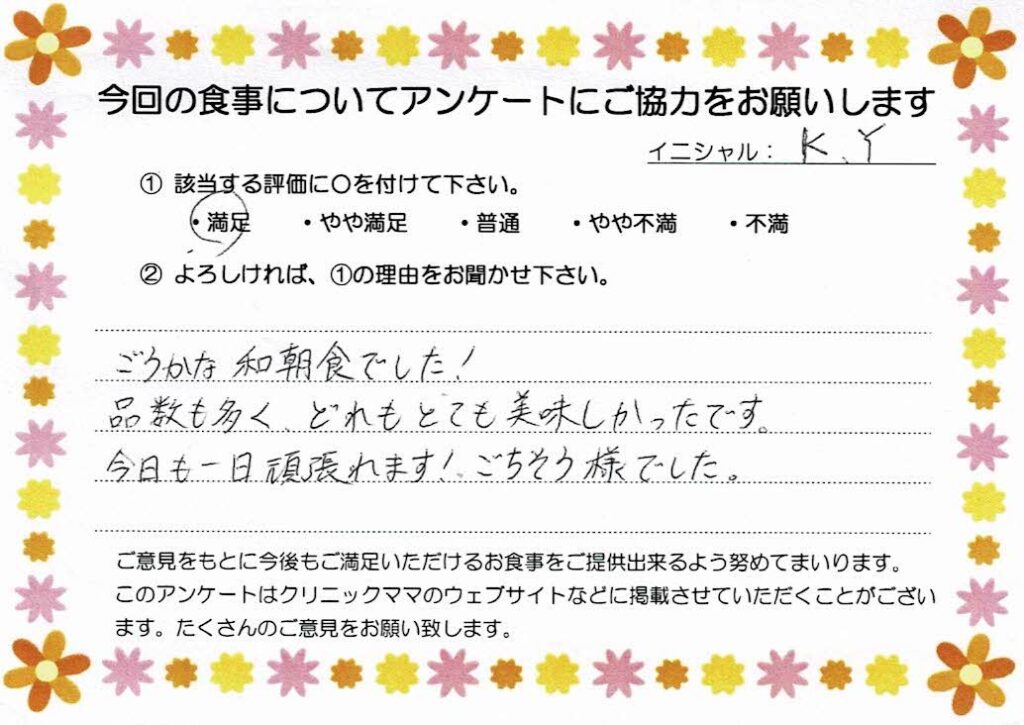 今回の食事についてアンケートにご協力をお願いします
イニシャル： K、Y
① 該当する評価に〇を付けて下さい。
・満足 ・やや満足 ・普通 ・やや不満 ・不満
② よろしければ、①の理由をお聞かせ下さい。
ごうかな和朝食でした！
品数も多く、どれもとても美味しかったです。
今日も一日頑張れます！、ごちそう様でした。
ご意見をもとに今後もご満足いただけるお食事をご提供出来るよう努めてまいります。
このアンケートはクリニックママのウェブサイトなどに掲載させていただくことがござい
ます。たくさんのご意見をお願い致します。